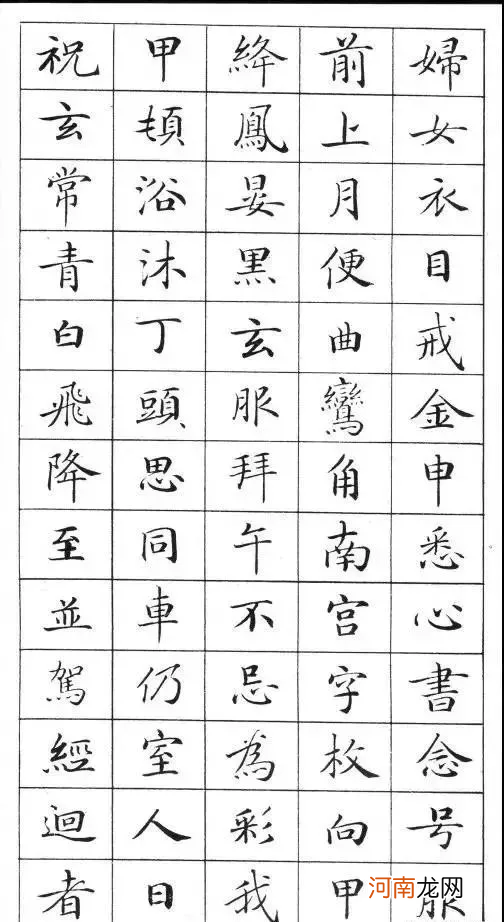 婦女衣目戒金申悉心書念号服
前上月便曲鸞角南宫字枚向甲
絳鳳晏黒玄服拜午不忌為彩我
甲頓浴沐丁頭思同車仍室人日
祝玄常青白飛降至並駕經迴者
河南龙网